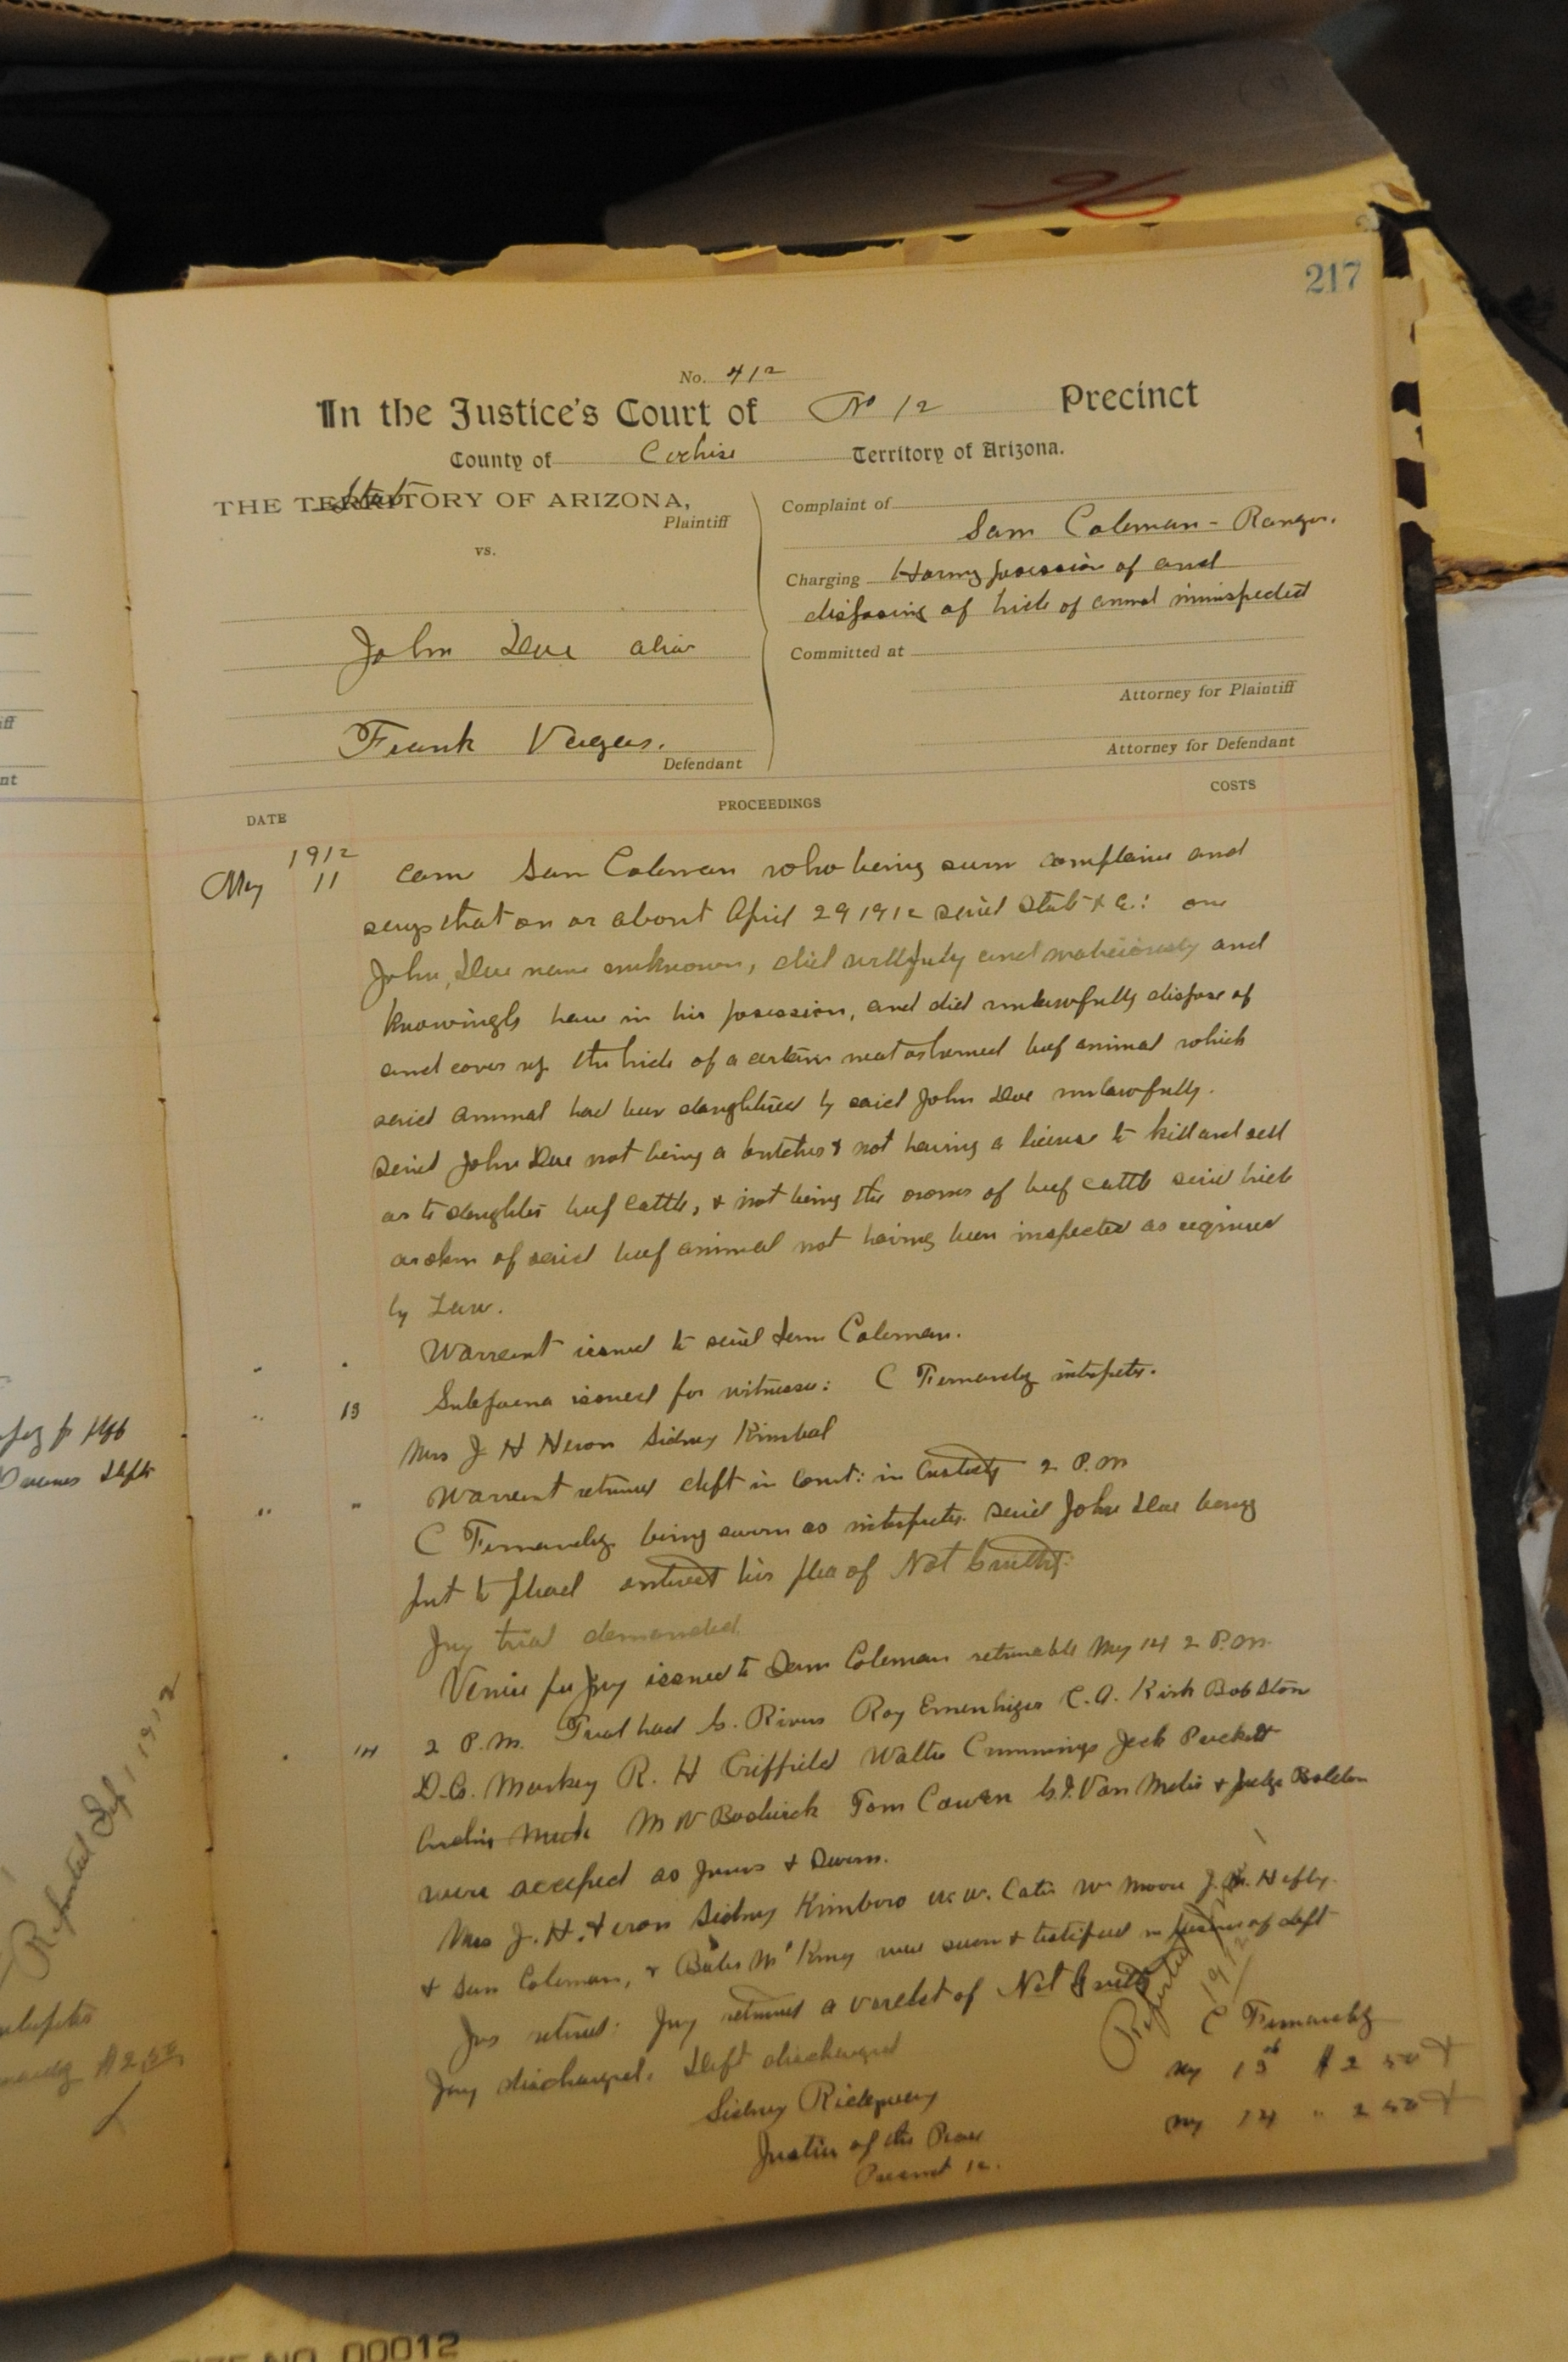 96
217
No. 412
In the Justice's Court of No 12 Precinct
County of Cochise Territory of Arizona.
THE TERRITORY OF ARIZONA,
State
Plaintiff
vs.
John Doe alias
Frank Vargas.
Defendant
Complaint of
Sam Coleman - Ranger.
Charging Having posession of and
disposing of hide of animal uninspected
Committed at
Attorney for Plaintiff
Attorney for Defendant
DATE
PROCEEDINGS
COSTS
1912
May 11 Came Sam Coleman who being sworn complains and
says that on or about April 29 1912 said State & Co: one
John Doe name unknown, did willfuly and maliciously and
knowingly have in his posession, and did unlawfully dispose of
and cover up the hide of a certain neat or horned beef animal which
said animal had been slaughtered by said John Doe unlawfully.
Said John Doe not being a butcher & not having a license to kill and sell
or to slaughter beef cattle, & not being the owner of beef cattle said hide
or skin of said beef animal not having been inspected as required
by Law.
" " Warrant issued to said Sam Coleman.
" 13 Subpoena issued for witnesses: C Fernandez interpeter.
Mrs J H Heron Sidney Kimbal
" " Warrant returned deft in Court: in Custody 2 P.M
C Fernandez being sworn as interpeter. Said John Doe being
put to plead entered his plea of Not Guilty:
Jury trial demanded
Venire for Jury issued to Sam Coleman returnable May 14 2 P.M.
" 14 2 P.M. Trial had G. Rivers Roy Emenhiger C.A. Kirk Bob Ston
D.G. Markey R. H Criffield Walter Cummings Jack Puckett
M W Bodwick Tom Cowen G.J. Van Metre & Judge Bolden
were accepted as Jurors & Sworn.
Mrs J. H. Heron Sidney Kimboro W.W. Cates Wm Moore J. Hefly
& Sam Coleman, & Bates McKinney were sworn & testified in of deft
Jury retired: Jury returned a verdict of Not Guilty
Jury discharged. Deft discharged
Sidney Ridgway
Justice of the Peace
Precinct 12.
Reported
1912
C Fernandez
May 13th $2 50
May 14 " 2 50
Reported Sep 1 1912
$2 50
NO. 00012